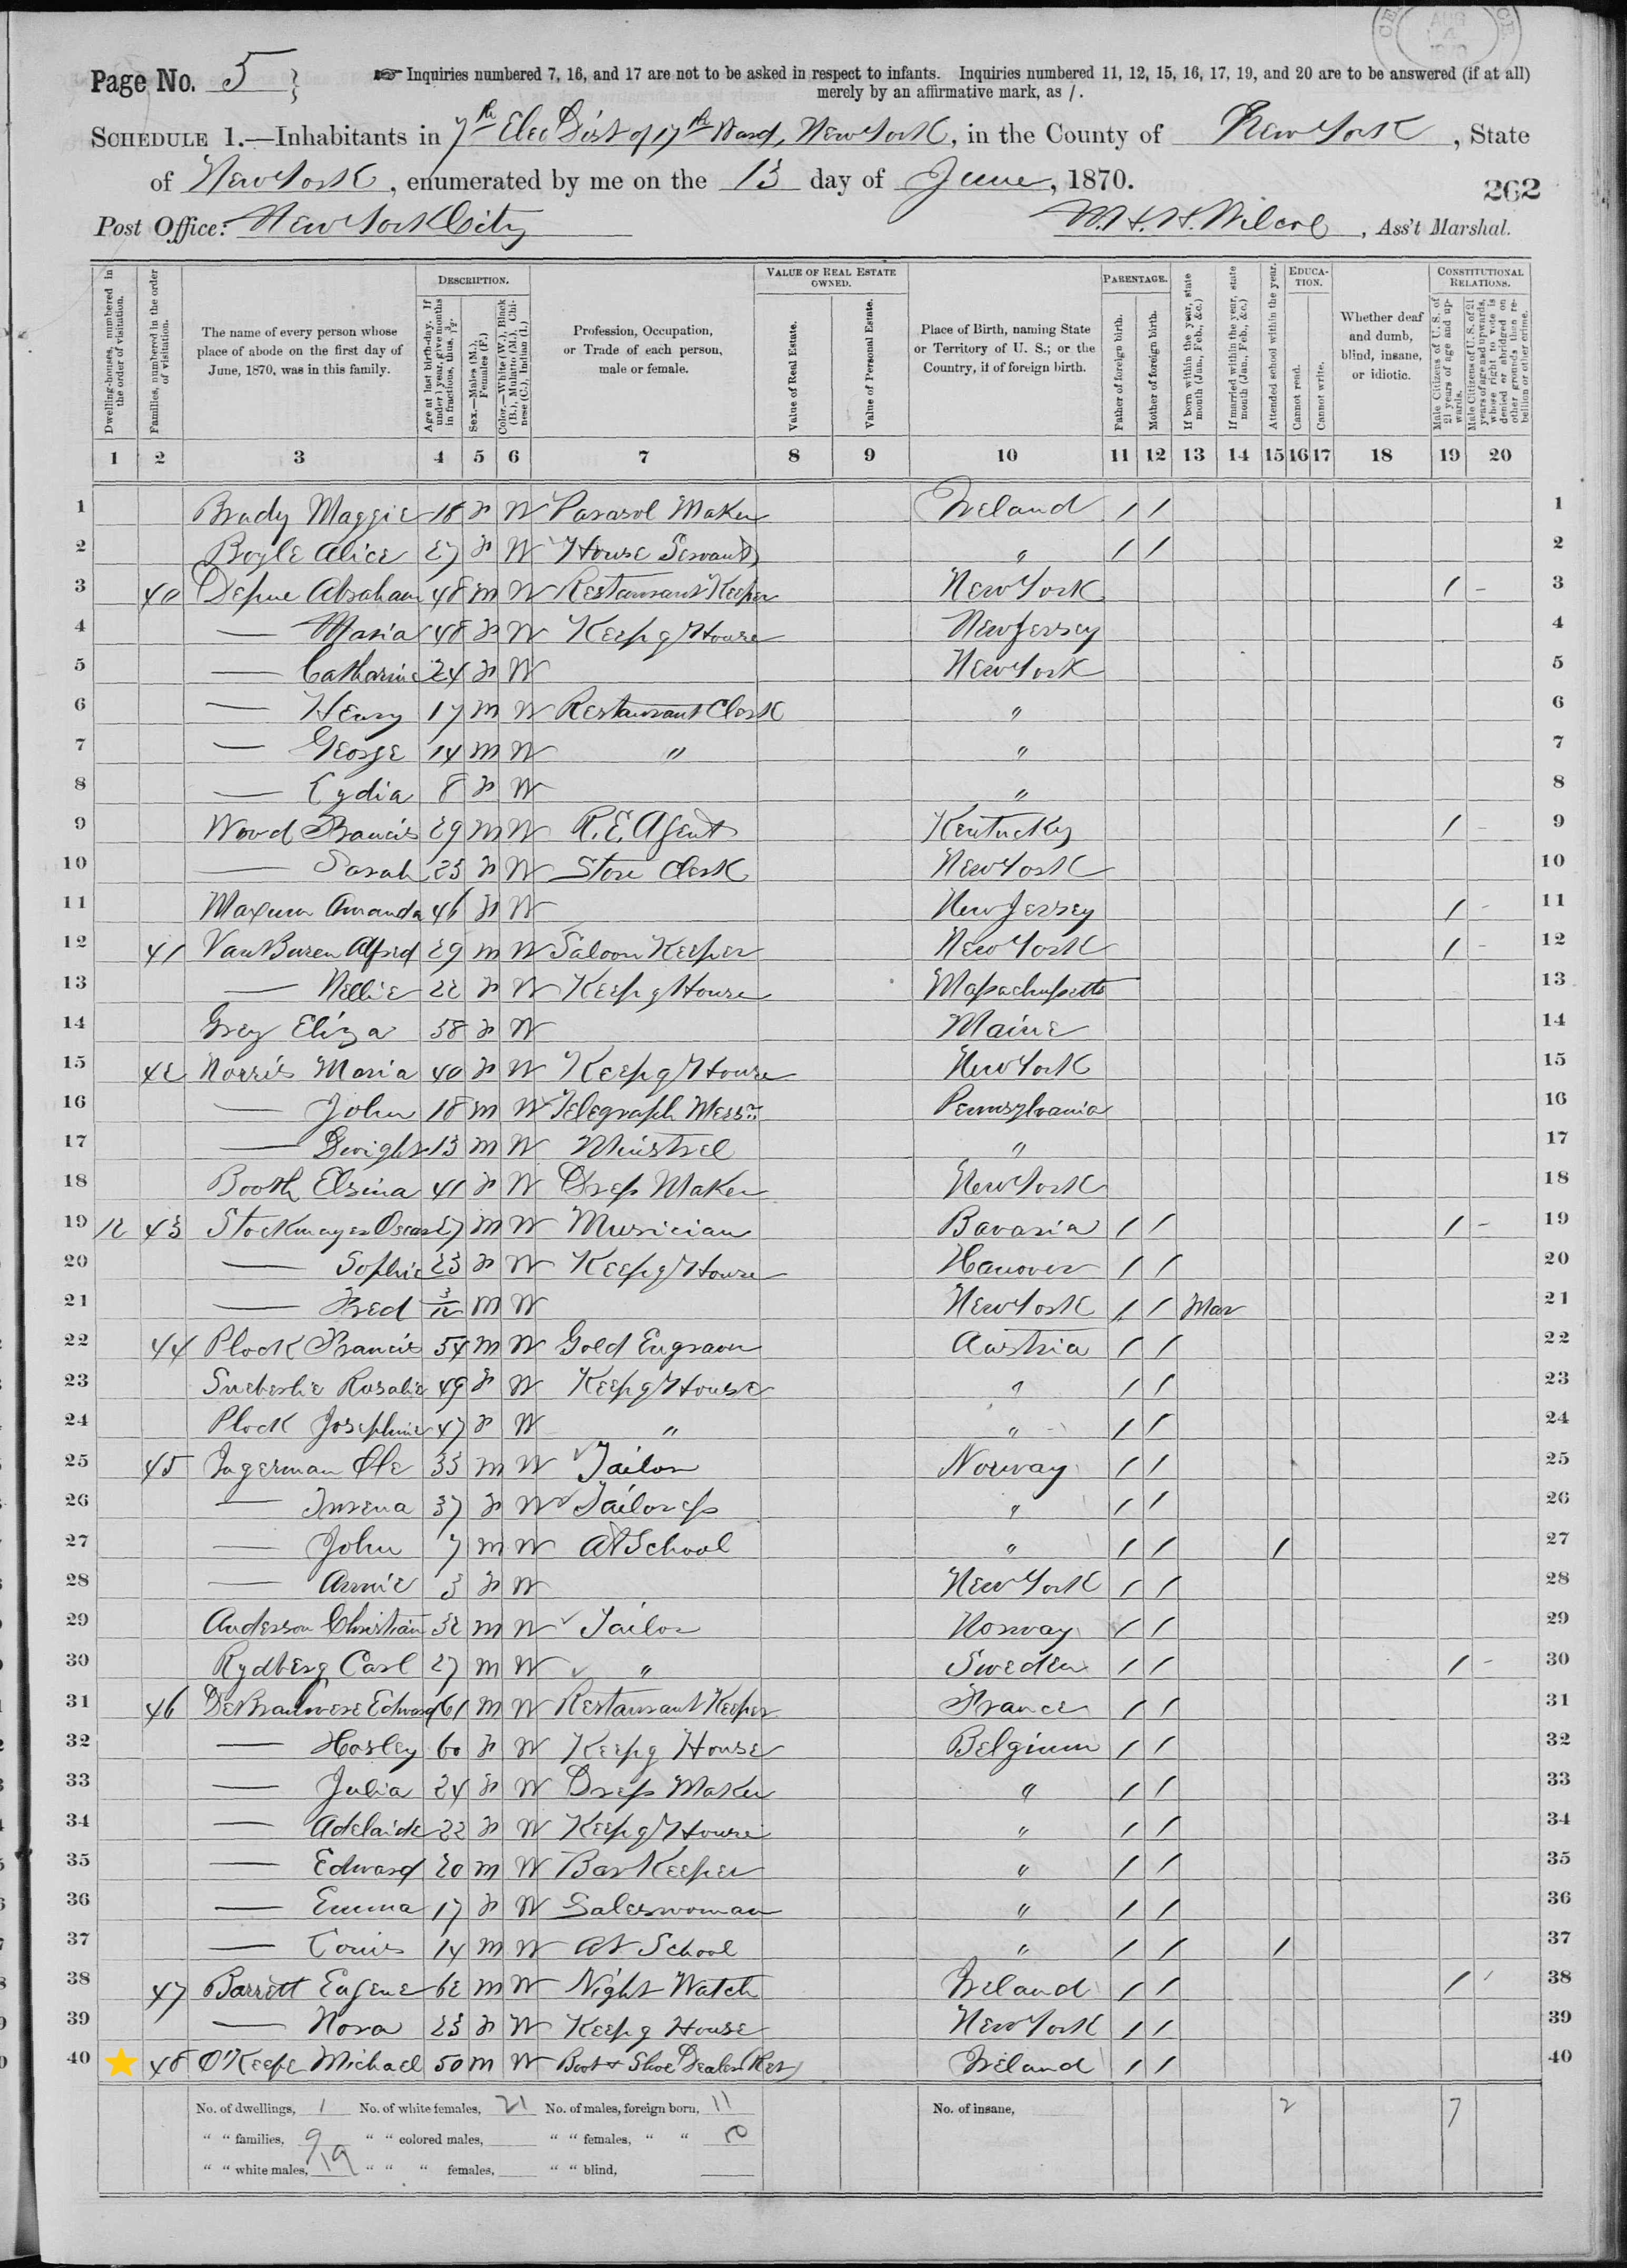 Page No. 5
☞ Inquiries numbered 7, 16, and 17 are not to be asked in respect to infants. Inquiries numbered 11, 12, 15, 16, 17, 19, and 20 are to be answered (if at all)
merely by an affirmative mark, as /.
SCHEDULE 1.—Inhabitants in 7th Elec Dist of 17th Ward, New York, in the County of New York, State
of New York, enumerated by me on the 13 day of June, 1870.
262
Post Office: New York City
M.H.H. Wilcox, Ass't Marshal.
Dwelling-houses, numbered in the order of visitation.
Families, numbered in the order of visitation.
The name of every person whose place of abode on the first day of June, 1870, was in this family.
DESCRIPTION.
Age at last birth-day. If under 1 year, give months in fractions, thus, 3/12.
Sex.—Males (M.), Females (F.)
Color.—White (W.), Black (B.), Mulatto (M.), Chinese (C.), Indian (I.)
Profession, Occupation, or Trade of each person, male or female.
VALUE OF REAL ESTATE OWNED.
Value of Real Estate.
Value of Personal Estate.
Place of Birth, naming State or Territory of U. S.; or the Country, if of foreign birth.
PARENTAGE.
Father of foreign birth.
Mother of foreign birth.
If born within the year, state month (Jan., Feb., &c.)
If married within the year, state month (Jan., Feb., &c.)
Attended school within the year.
EDUCATION.
Cannot read.
Cannot write.
Whether deaf and dumb, blind, insane, or idiotic.
CONSTITUTIONAL RELATIONS.
Male Citizens of U. S. of 21 years of age and upwards.
Male Citizens of U. S. of 21 years of age and upwards, whose right to vote is denied or abridged on other grounds than rebellion or other crime.
1 2 3 4 5 6 7 8 9 10 11 12 13 14 15 16 17 18 19 20
1 Brady Maggie 18 F W Parasol Maker Ireland / / 1
2 Boyle Alice 27 F W House Servant " / / 2
3 40 Depue Abraham 48 M W Restaurant Keeper New York / - 3
4 — Maria 48 F W Keepg House New Jersey 4
5 — Catharine 24 F W New York 5
6 — Henry 17 M W Restaurant Clerk " 6
7 — George 14 M W " " 7
8 — Lydia 8 F W " 8
9 Wood Francis 29 M W R. E. Agent Kentucky / - 9
10 — Sarah 23 F W Store Clerk New York 10
11 Maxum Amanda 46 F W New Jersey / - 11
12 41 Van Buren Alfred 29 M W Saloon Keeper New York / - 12
13 — Nellie 22 F W Keepg House Massachusetts 13
14 Grey Eliza 38 F W Maine 14
15 42 Norris Maria 40 F W Keepg House New York 15
16 — John 18 M W Telegraph Messr Pennsylvania 16
17 — Dwight 13 M W Minstrel " 17
18 Booth Elsina 41 F W Dress Maker New York 18
19 12 43 Stockmayer Oscar 27 M W Musician Bavaria / / / - 19
20 — Sophie 23 F W Keepg House Hanover / / 20
21 — Fred 3/12 M W New York / / Mar 21
22 44 Plock Francis 54 M W Gold Engraver Austria / / 22
23 Rosalie 49 F W Keepg House " / / 23
24 Plock Josephine 47 F W " " / / 24
25 45 Ingerman Ole 33 M W Tailor Norway / / 25
26 — 37 F W Tailoress " / / 26
27 — John 7 M W At School " / / / 27
28 — Annie 3 F W New York / / 28
29 Anderson Christian 32 M W Tailor Norway / / 29
30 Rydberg Carl 27 M W " Sweden / / / - 30
31 46 Edward 61 M W Restaurant Keeper France / / 31
32 — Horley 60 F W Keepg House Belgium / / 32
33 — Julia 24 F W Dress Maker " / / 33
34 — Adelaide 22 F W Keepg House " / / 34
35 — Edward 20 M W Bar Keeper " / / 35
36 — Emma 17 F W Saleswoman " / / 36
37 — Louis 14 M W At School " / / / 37
38 47 Barrett Eugene 62 M W Night Watch Ireland / / / ' 38
39 — Nora 23 F W Keepg House New York / / 39
40 48 O'Keefe Michael 50 M W Boot & Shoe Dealer (Ret) Ireland / / 40
No. of dwellings, 1 No. of white females, 21 No. of males, foreign born, 11 No. of insane, 2 7
" " families, 9 " " colored males, " " females, " " 10
" " white males, 19 " " " females, " " blind,